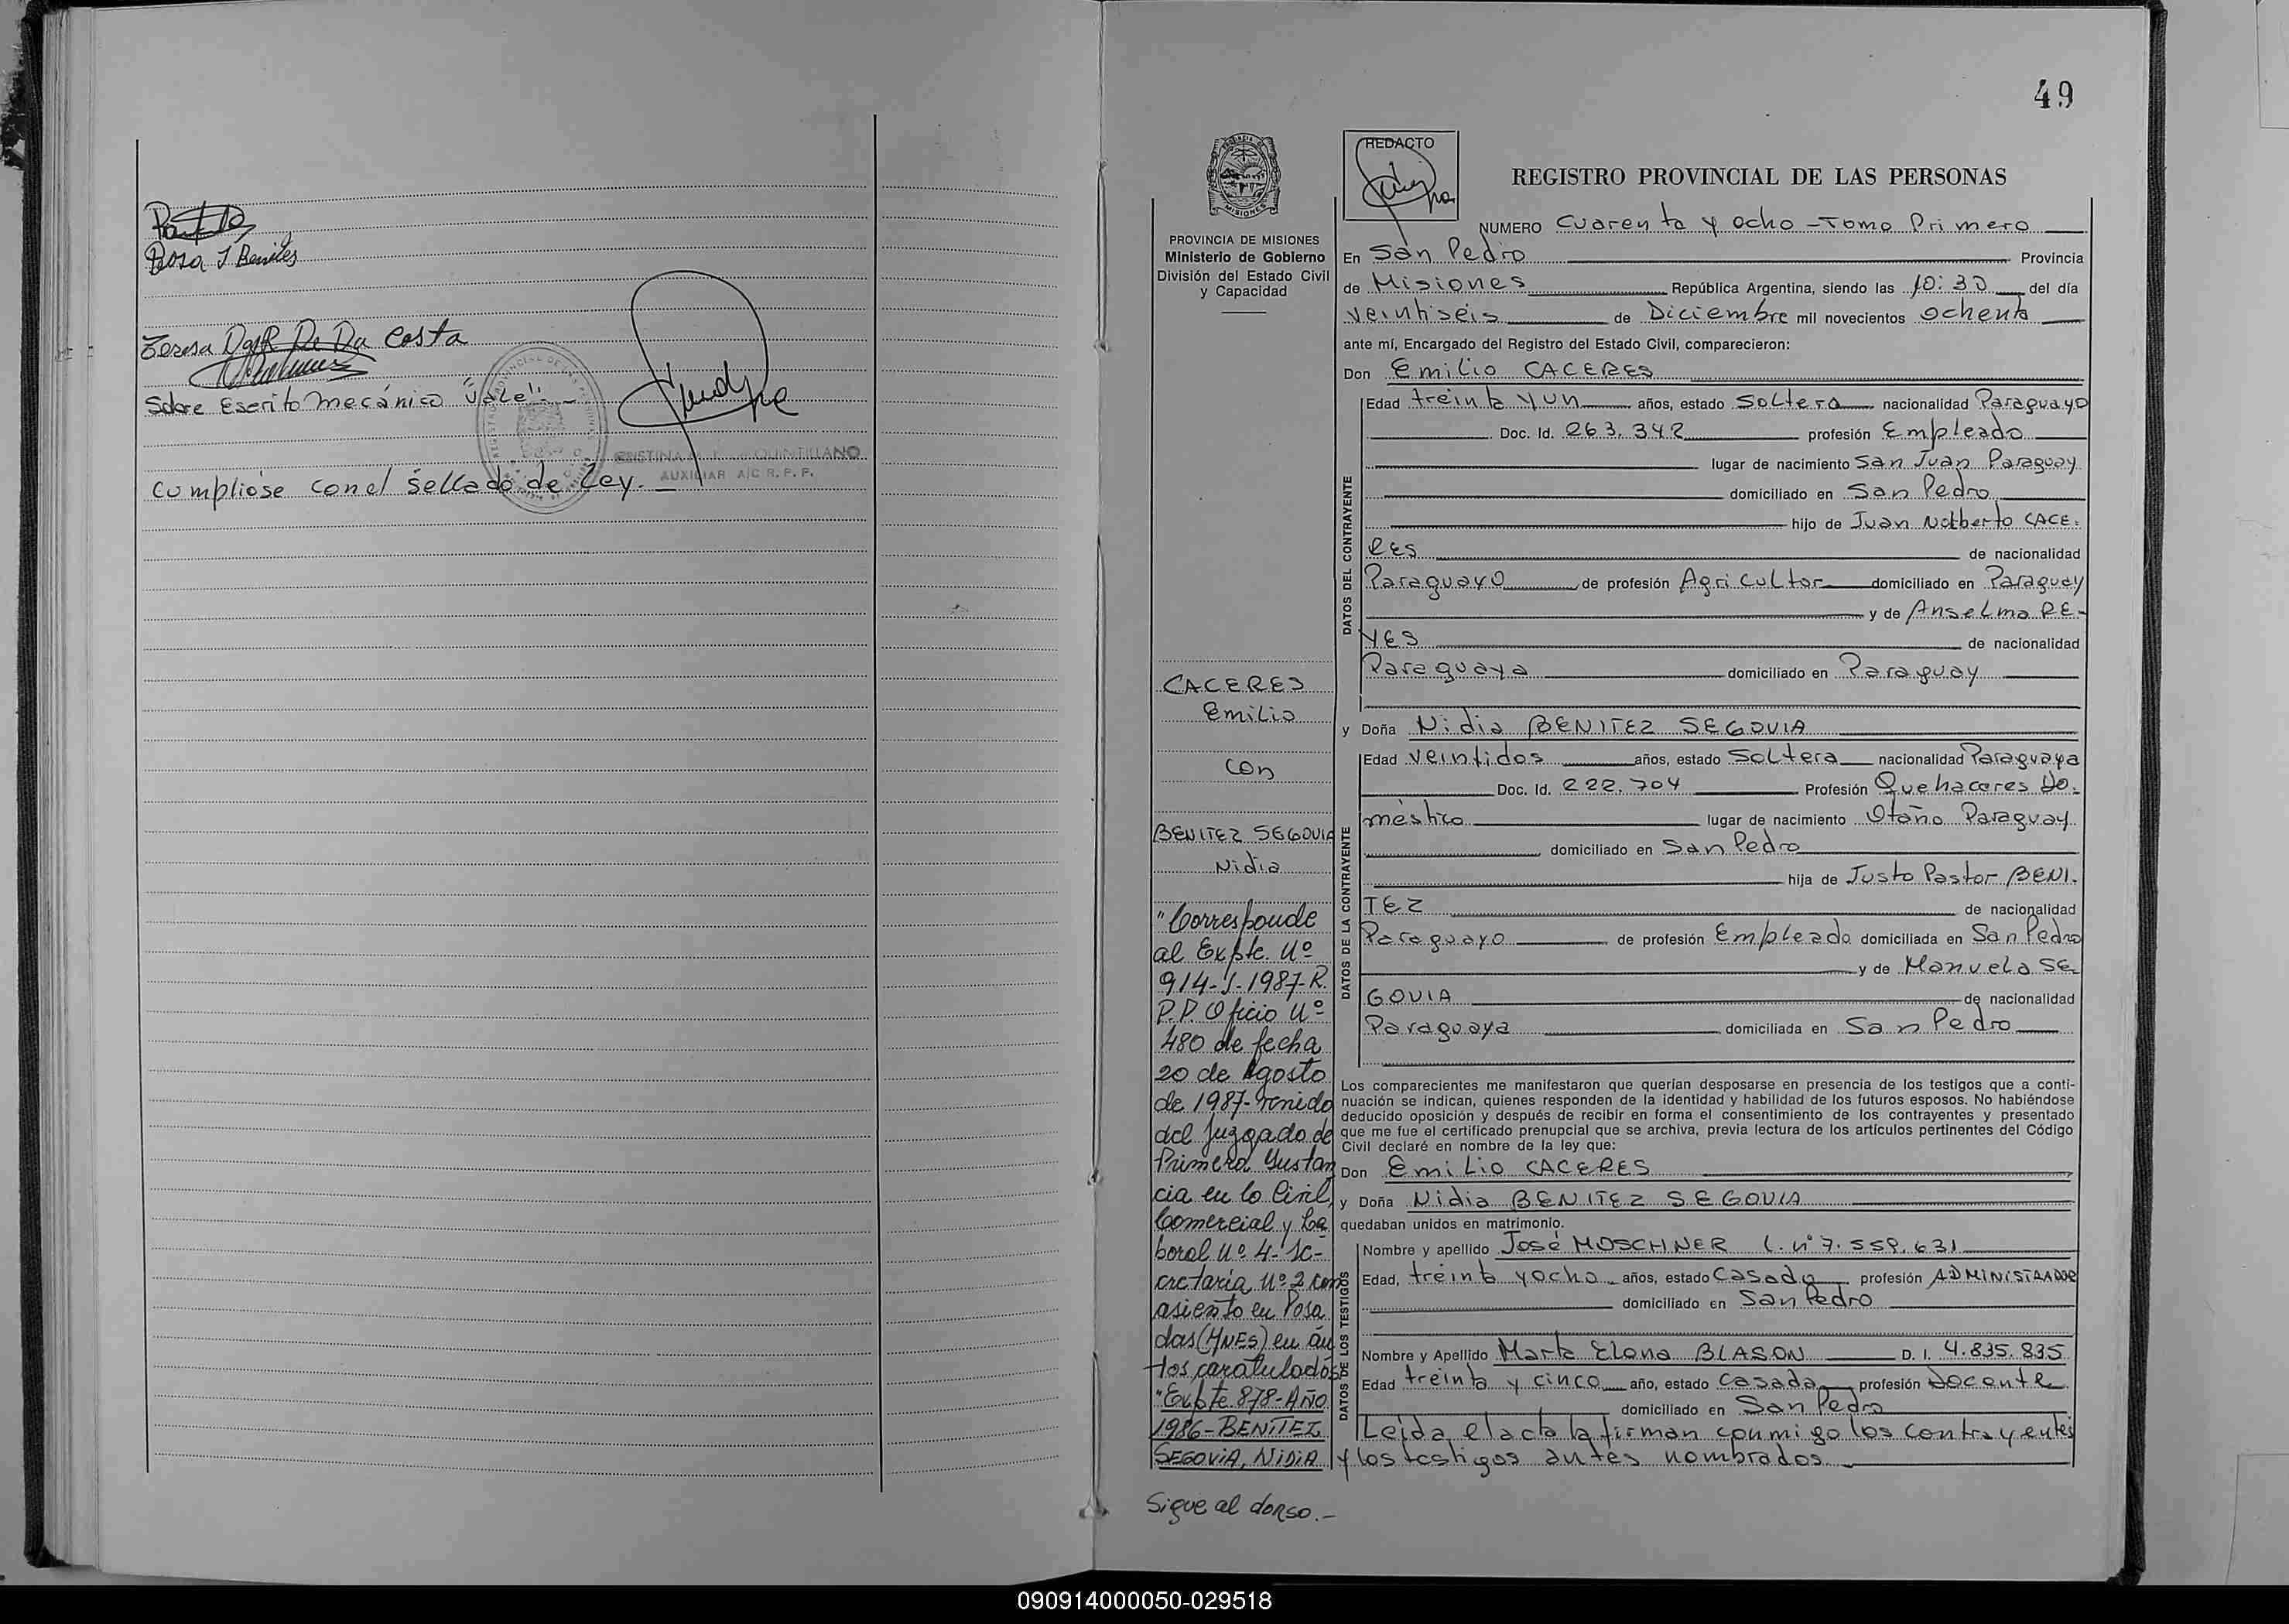 Rosa J Benites
Teresa D R De Da Costa
Sobre Escrito mecánico "Vale".-
QUINTILIANO
AUXILIAR A/C R. P. P.
Cumpliose con el sellado de Ley. —
49
REDACTO
REGISTRO PROVINCIAL DE LAS PERSONAS
PROVINCIA DE MISIONES
Ministerio de Gobierno
División del Estado Civil
y Capacidad
CACERES
Emilio
con
BENITEZ SEGOVIA
Nidia
"Corresponde
al Expte. Nº
914-J-1987-R.
P.P. Oficio Nº
480 de fecha
20 de Agosto
de 1987- venido
del Juzgado de
Primera Instan
cia en lo Civil,
Comercial y La
boral Nº 4- Se-
cretaría Nº 2 con
asiento en Posa
das (Mnes) en au
tos caratulados
"Expte. 878-Año
1986-BENITEZ
SEGOVIA, NIDIA
Sigue al dorso.-
NUMERO Cuarenta y ocho - Tomo Primero
En San Pedro Provincia
de Misiones República Argentina, siendo las 10:30 del día
veintiseis de Diciembre mil novecientos Ochenta
ante mí, Encargado del Registro del Estado Civil, comparecieron:
Don Emilio CACERES
DATOS DEL CONTRAYENTE
Edad treinta y un años, estado Soltero nacionalidad Paraguayo
Doc. Id. 263.342 profesión Empleado
lugar de nacimiento San Juan Paraguay
domiciliado en San Pedro
hijo de Juan Notberto CACE-
RES de nacionalidad
Paraguayo de profesión Agricultor domiciliado en Paraguay
y de Anselma RE-
YES de nacionalidad
Paraguaya domiciliado en Paraguay
y Doña Nidia BENITEZ SEGOVIA
DATOS DE LA CONTRAYENTE
Edad veintidos años, estado Soltera nacionalidad Paraguaya
Doc. Id. 222.704 Profesión Quehaceres Do-
méstico lugar de nacimiento Otaño Paraguay
domiciliado en San Pedro
hija de Justo Pastor BENI-
TEZ de nacionalidad
Paraguayo de profesión Empleado domiciliada en San Pedro
y de Manuela SE-
GOVIA de nacionalidad
Paraguaya domiciliada en San Pedro
Los comparecientes me manifestaron que querían desposarse en presencia de los testigos que a conti-
nuación se indican, quienes responden de la identidad y habilidad de los futuros esposos. No habiéndose
deducido oposición y después de recibir en forma el consentimiento de los contrayentes y presentado
que me fue el certificado prenupcial que se archiva, previa lectura de los artículos pertinentes del Código
Civil declaré en nombre de la ley que:
Don Emilio CACERES
y Doña Nidia BENITEZ SEGOVIA
quedaban unidos en matrimonio.
DATOS DE LOS TESTIGOS
Nombre y apellido José MOSCHNER L. nº 7.559.631
Edad, treinta y ocho años, estado Casado profesión ADMINISTRADOR
domiciliado en San Pedro
Nombre y Apellido Marta Elena BIASON D. I. 4.835.835
Edad treinta y cinco año, estado Casada profesión Docente
domiciliado en San Pedro
Leída el acta la firman conmigo los contrayentes
y los testigos antes nombrados.
090914000050-029518